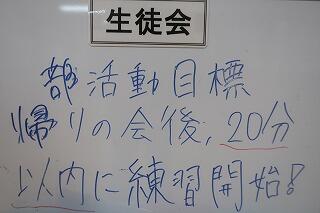 生徒会
部活動目標
帰りの会後,20分
以内に練習開始!